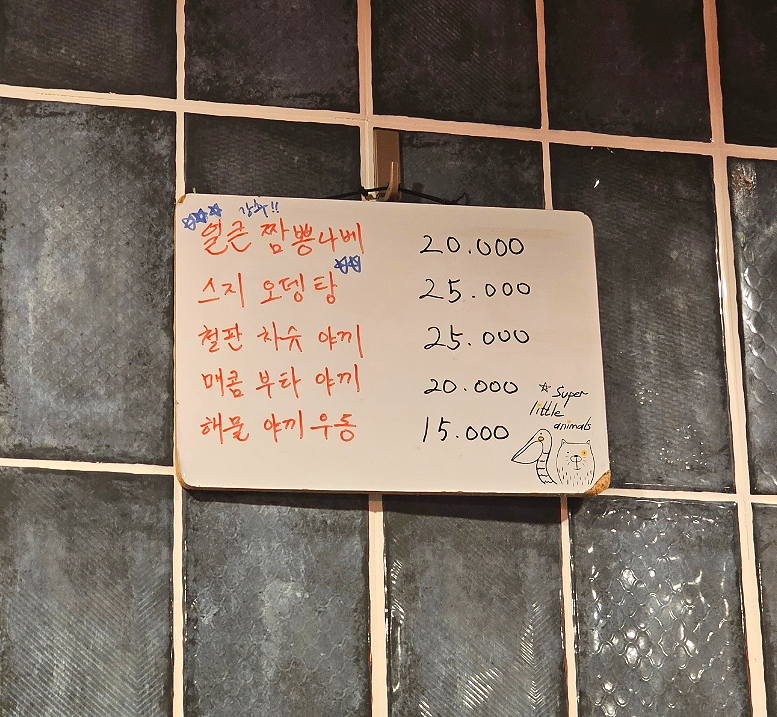 강추!!
얼큰 짬뽕나베 20.000
스지 오뎅탕 25.000
철판 차슈 야끼 25.000
매콤 부타 야끼 20.000
해물 야끼우동 15.000
Super
little
animals